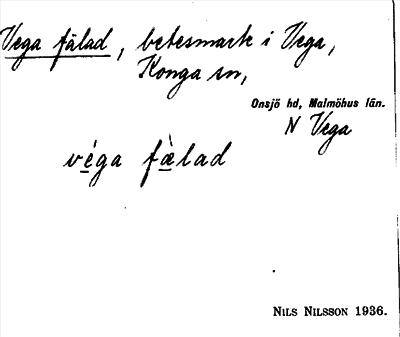 Vega fälad, betesmark i Vega,
Konga sn,
Onsjö hd, Malmöhus län.
N Vega
vé̱ga fæ̱̀lad
NILS NILSSON 1936.